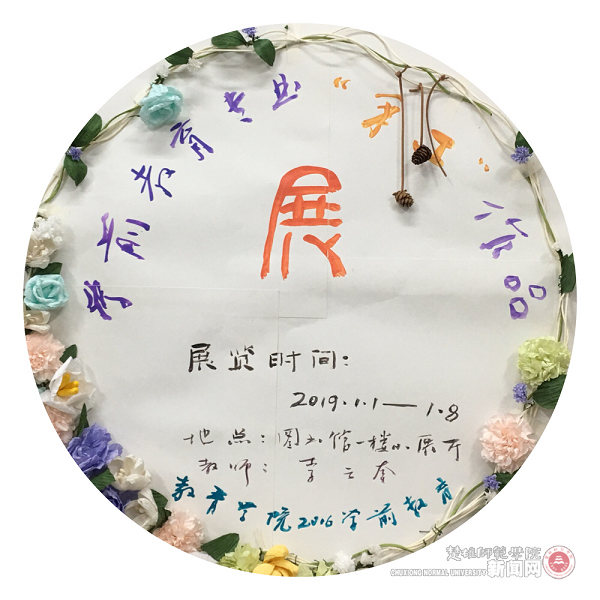 学前教育专业“手工”作品
展
展览时间：
2019.1.1—1.8
地点：图书馆一楼小展厅
教师：李云春
教育学院2016学前教育
楚雄师范学院
CHUXIONG NORMAL UNIVERSITY 新闻网